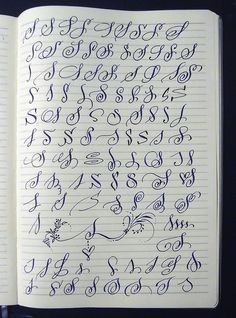 S S S S S S S
S S S S S S S S
S S S S S S S S
S S S S S S S S S
S S S S S S S S
S S S S S S S S
S S S S S S S S
S S S S S S S S
S S ssss
S
S S S S S S S S S
S S S S S S S S